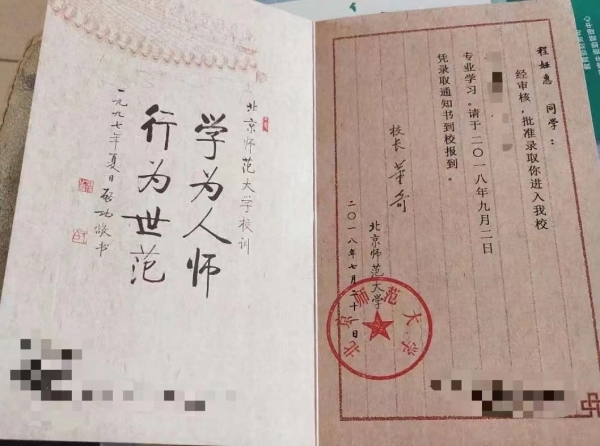 北京师范大学校训
学为人师
行为世范
一九九七年夏日 启功敬书
程 惠 同学：
经审核，批准录取你进入我校
专业学习。请于二〇一八年九月二日
凭录取通知书到校报到。
校长 董奇
北京师范大学
二〇一八年七月二十日
北京师范大学